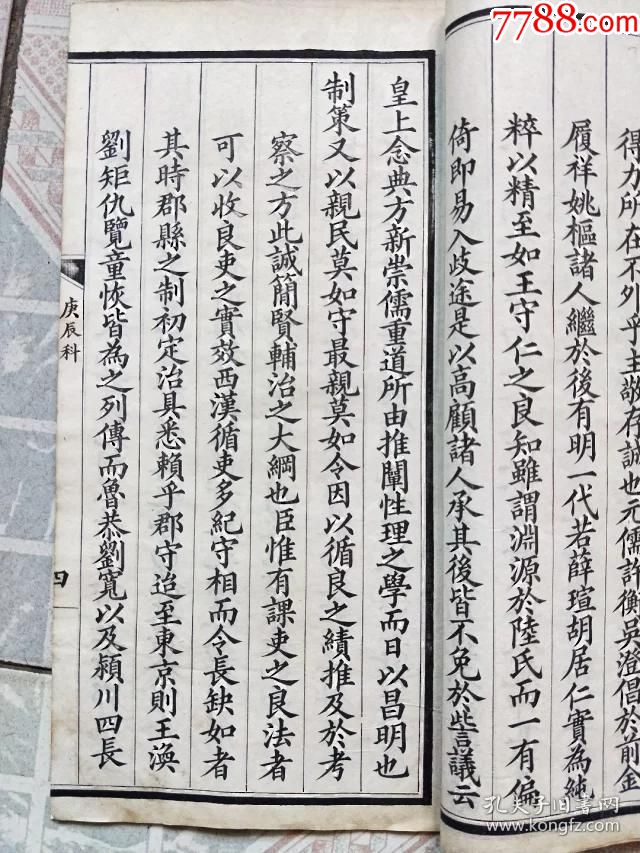 7788.com
中国收藏热线
得力所在不外乎主敬存誠也元儒許衡吳澄倡於前金
履祥姚樞諸人繼於後有明一代若薛瑄胡居仁實為純
粹以精至如王守仁之良知雖謂淵源於陸氏而一有偏
倚即易入歧途是以高顧諸人承其後皆不免於訾議云
皇上念典方新崇儒重道所由推闡性理之學而日以昌明也
制策又以親民莫如守最親莫如令因以循良之績推及於考
察之方此誠簡賢輔治之大綱也臣惟有課吏之良法者
可以收良吏之實效西漢循吏多紀守相而令長缺如者
其時郡縣之制初定治具悉賴乎郡守迨至東京則王渙
劉矩仇覽童恢皆為之列傳而魯恭劉寬以及潁川四長
庚辰科
四
孔夫子旧书网
www.kongfz.com